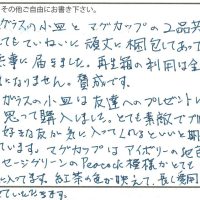 その他ご自由にお書き下さい。
ガラスの小皿とマグカップの2品
てもていねいに頑丈に梱包してあって
無事に届きました。再生箱の利用は全
になりません。賛成です。
ガラスの小皿は友達へのプレゼントに
思って購入しました。とても素敵でブル
好きな友が気に入ってくれるといいと期
ています。マグカップはアイボリーの地色
セージグリーンのPeacock模様がとても
に入ってます。紅茶の色が映えて、長く愛用
せていただきます。